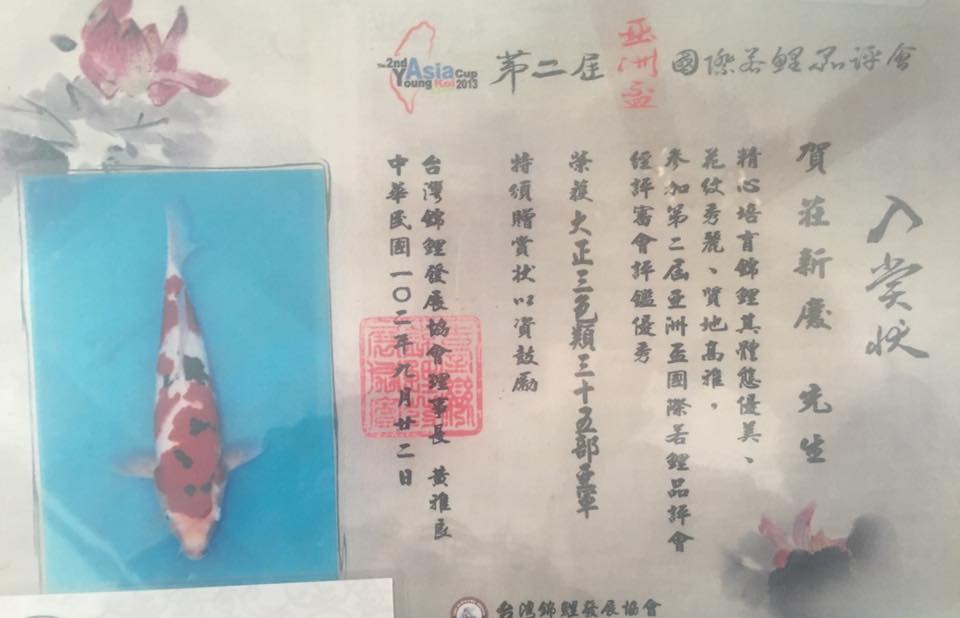 2nd Asia Cup
Young Koi 2013
第二屆亞洲盃國際若鯉品評會
入賞狀
賀莊新慶 先生
精心培育錦鯉其體態優美、
花紋秀麗、質地高雅，
參加第二屆亞洲盃國際若鯉品評會
經評審會評鑑優秀
榮獲大正三色類三十五部亞軍
特頒贈賞狀以資鼓勵
台灣錦鯉發展協會理事長 黃雅良
中華民國一〇二年九月廿二日
台灣錦鯉發展協會